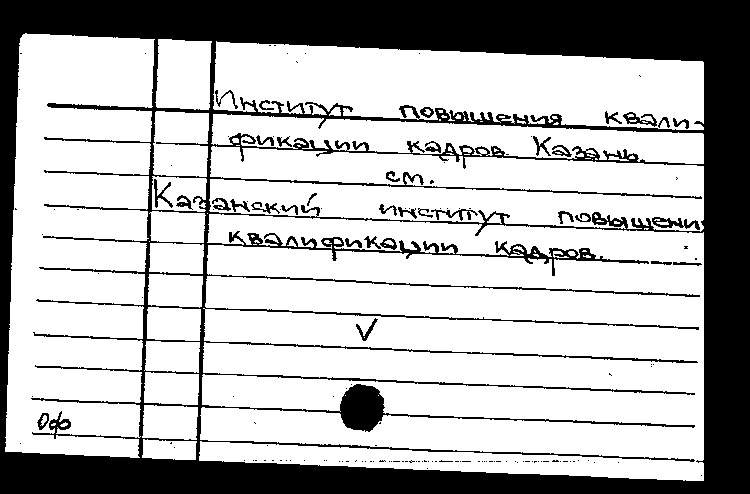 Институт повышения квали-
фикации кадров. Казань.
см.
Казанский институт повышения
квалификации кадров.
V
Офо